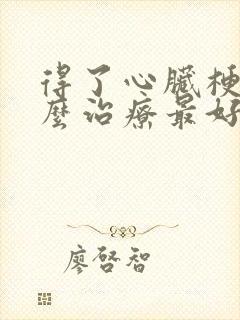 得了心臟梗
麼治療最好
廖啓智